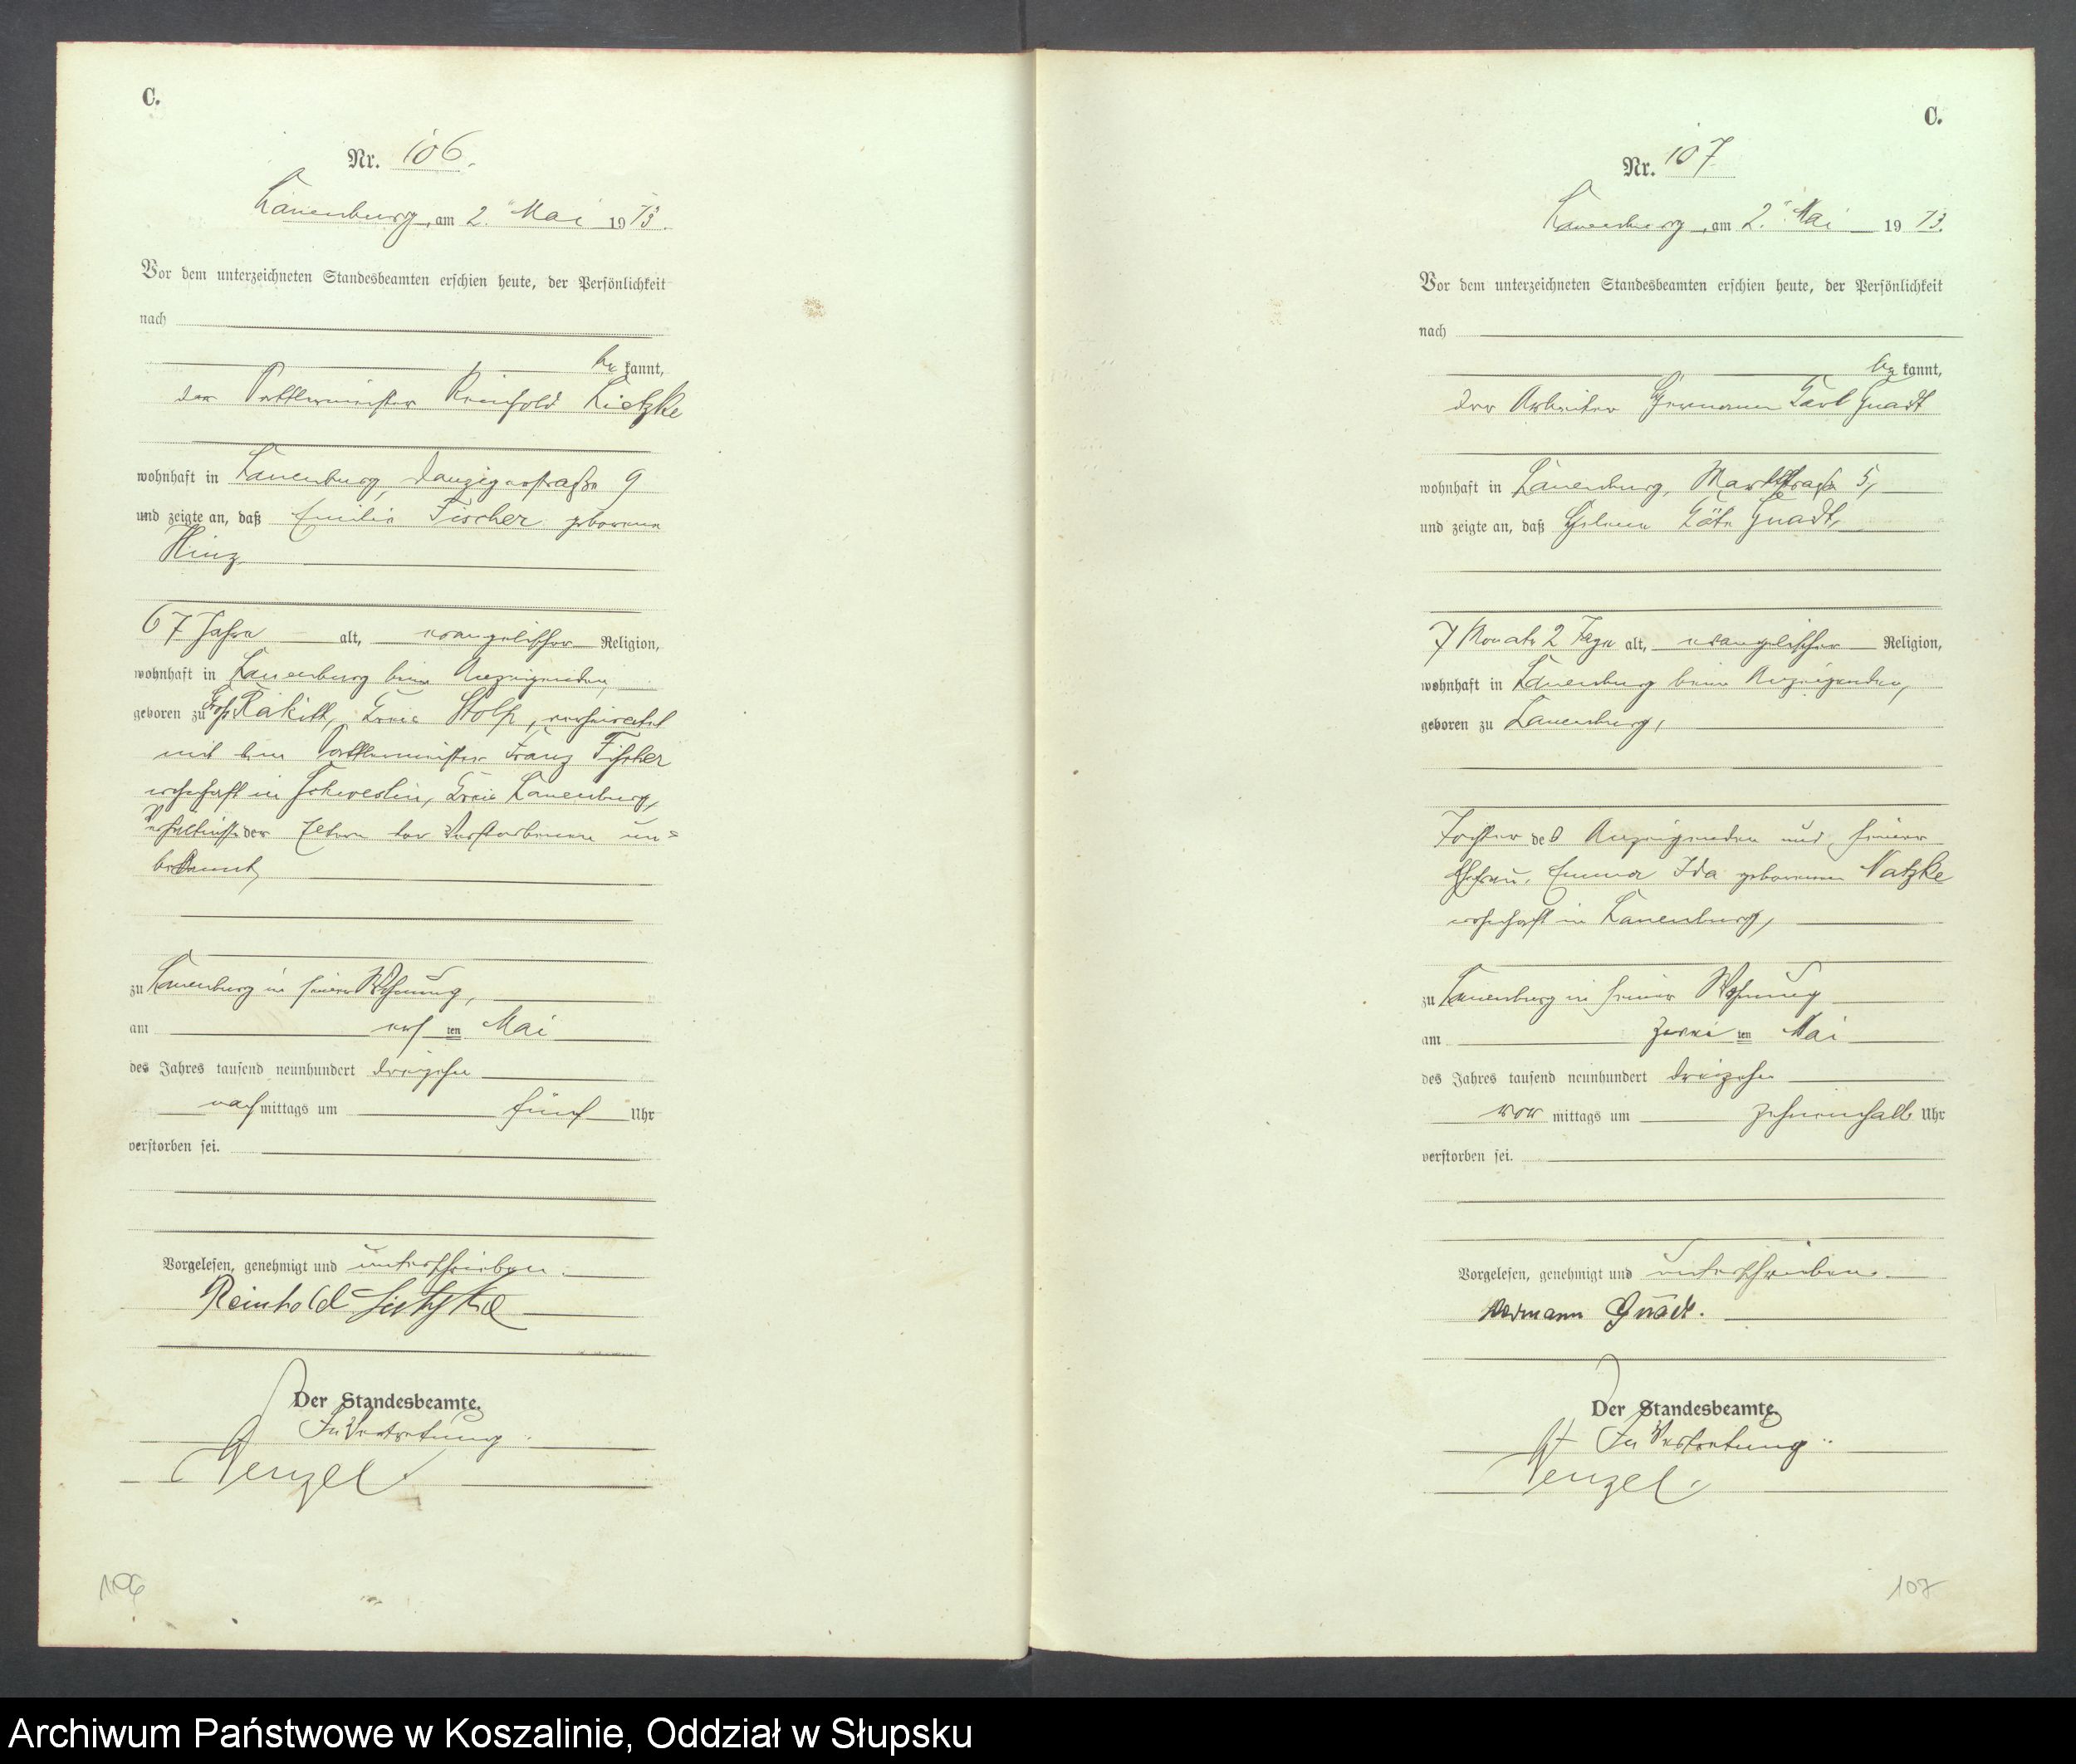 C.
Nr. 106.
Lauenburg, am 2. Mai 1913.
Vor dem unterzeichneten Standesbeamten erschien heute, der Persönlichkeit
nach
be kannt,
der Sattlermeister Reinhold Lietzke
wohnhaft in Lauenburg, Danzigerstraße 9
und zeigte an, daß Emilie Fischer geborene
Hinz
67 Jahre alt, evangelischer Religion,
wohnhaft in Lauenburg beim Anzeigenden,
geboren zu Groß Rakitt, Kreis Stolp, verheiratet
mit dem Sattlermeister Franz Fischer
wohnhaft in Schweslin, Kreis Lauenburg,
Verhältnisse der Eltern der Verstorbenen un=
bekannt,
zu Lauenburg in seiner Wohnung,
am ersten Mai
des Jahres tausend neunhundert dreizehn
nach mittags um fünf Uhr
verstorben sei.
Vorgelesen, genehmigt und unterschrieben.
Reinhold Lietzke
Der Standesbeamte.
In Vertretung.
Wenzel
106
C.
Nr. 107
Lauenburg, am 2. Mai 1913.
Vor dem unterzeichneten Standesbeamten erschien heute, der Persönlichkeit
nach
be kannt,
der Arbeiter Hermann Carl Gnadt
wohnhaft in Lauenburg, Marktstraße 5,
und zeigte an, daß Helene Käte Gnadt,
7 Monate 2 Tage alt, evangelischer Religion,
wohnhaft in Lauenburg beim Anzeigenden,
geboren zu Lauenburg,
Tochter des Anzeigenden und seiner
Ehefrau, Emma Ida geborenen Natzke
wohnhaft in Lauenburg,
zu Lauenburg in seiner Wohnung
am zweiten Mai
des Jahres tausend neunhundert dreizehn
vor mittags um zehneinhalb Uhr
verstorben sei.
Vorgelesen, genehmigt und unterschrieben.
Hermann Gnadt.
Der Standesbeamte.
In Vertretung.
Wenzel
107
Archiwum Państwowe w Koszalinie, Oddział w Słupsku